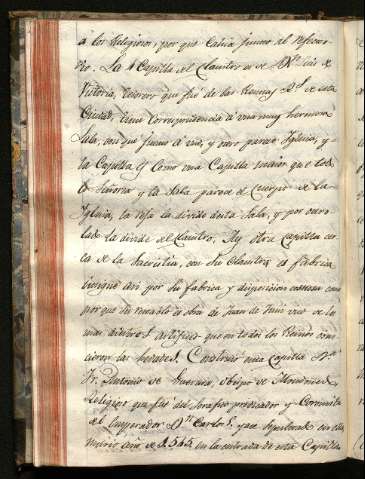 á los Religiosos, por que cahia junto al Refecto-
rio. La 1 Capilla del Claustro es de Dn. Luis de
Victoria, tesorero que fué de las Rentas Rs. de esta
Ciudad, tiene correspondencia á una muy hermosa
Sala, con que junto á una, y otro parece Iglesia, y
la Capilla es como una Capilla maior que
y la Sala parece el cuerpo de la
Iglesia, la reja la divide desta Sala, y por otro
lado la divide del Claustro. Ay otra capilla cer-
ca de la Sacristia, con su Claustro de fabrica
insigne asi por su fabrica y disposicion como
por que su retablo es obra de Juan de Juni uno de los
mas artifices que en todos los Reinos cono-
cieron las hedades. Construió esta Capilla Dn.
Fr. Antonio de Guevara, obispo de Mondoñedo
Religioso que fué del Serafico predicador y Coronista
del Emperador Dn. Carlos 5. y esta sepultado en ella
murió año de 1545 en la entrada de esta Capilla